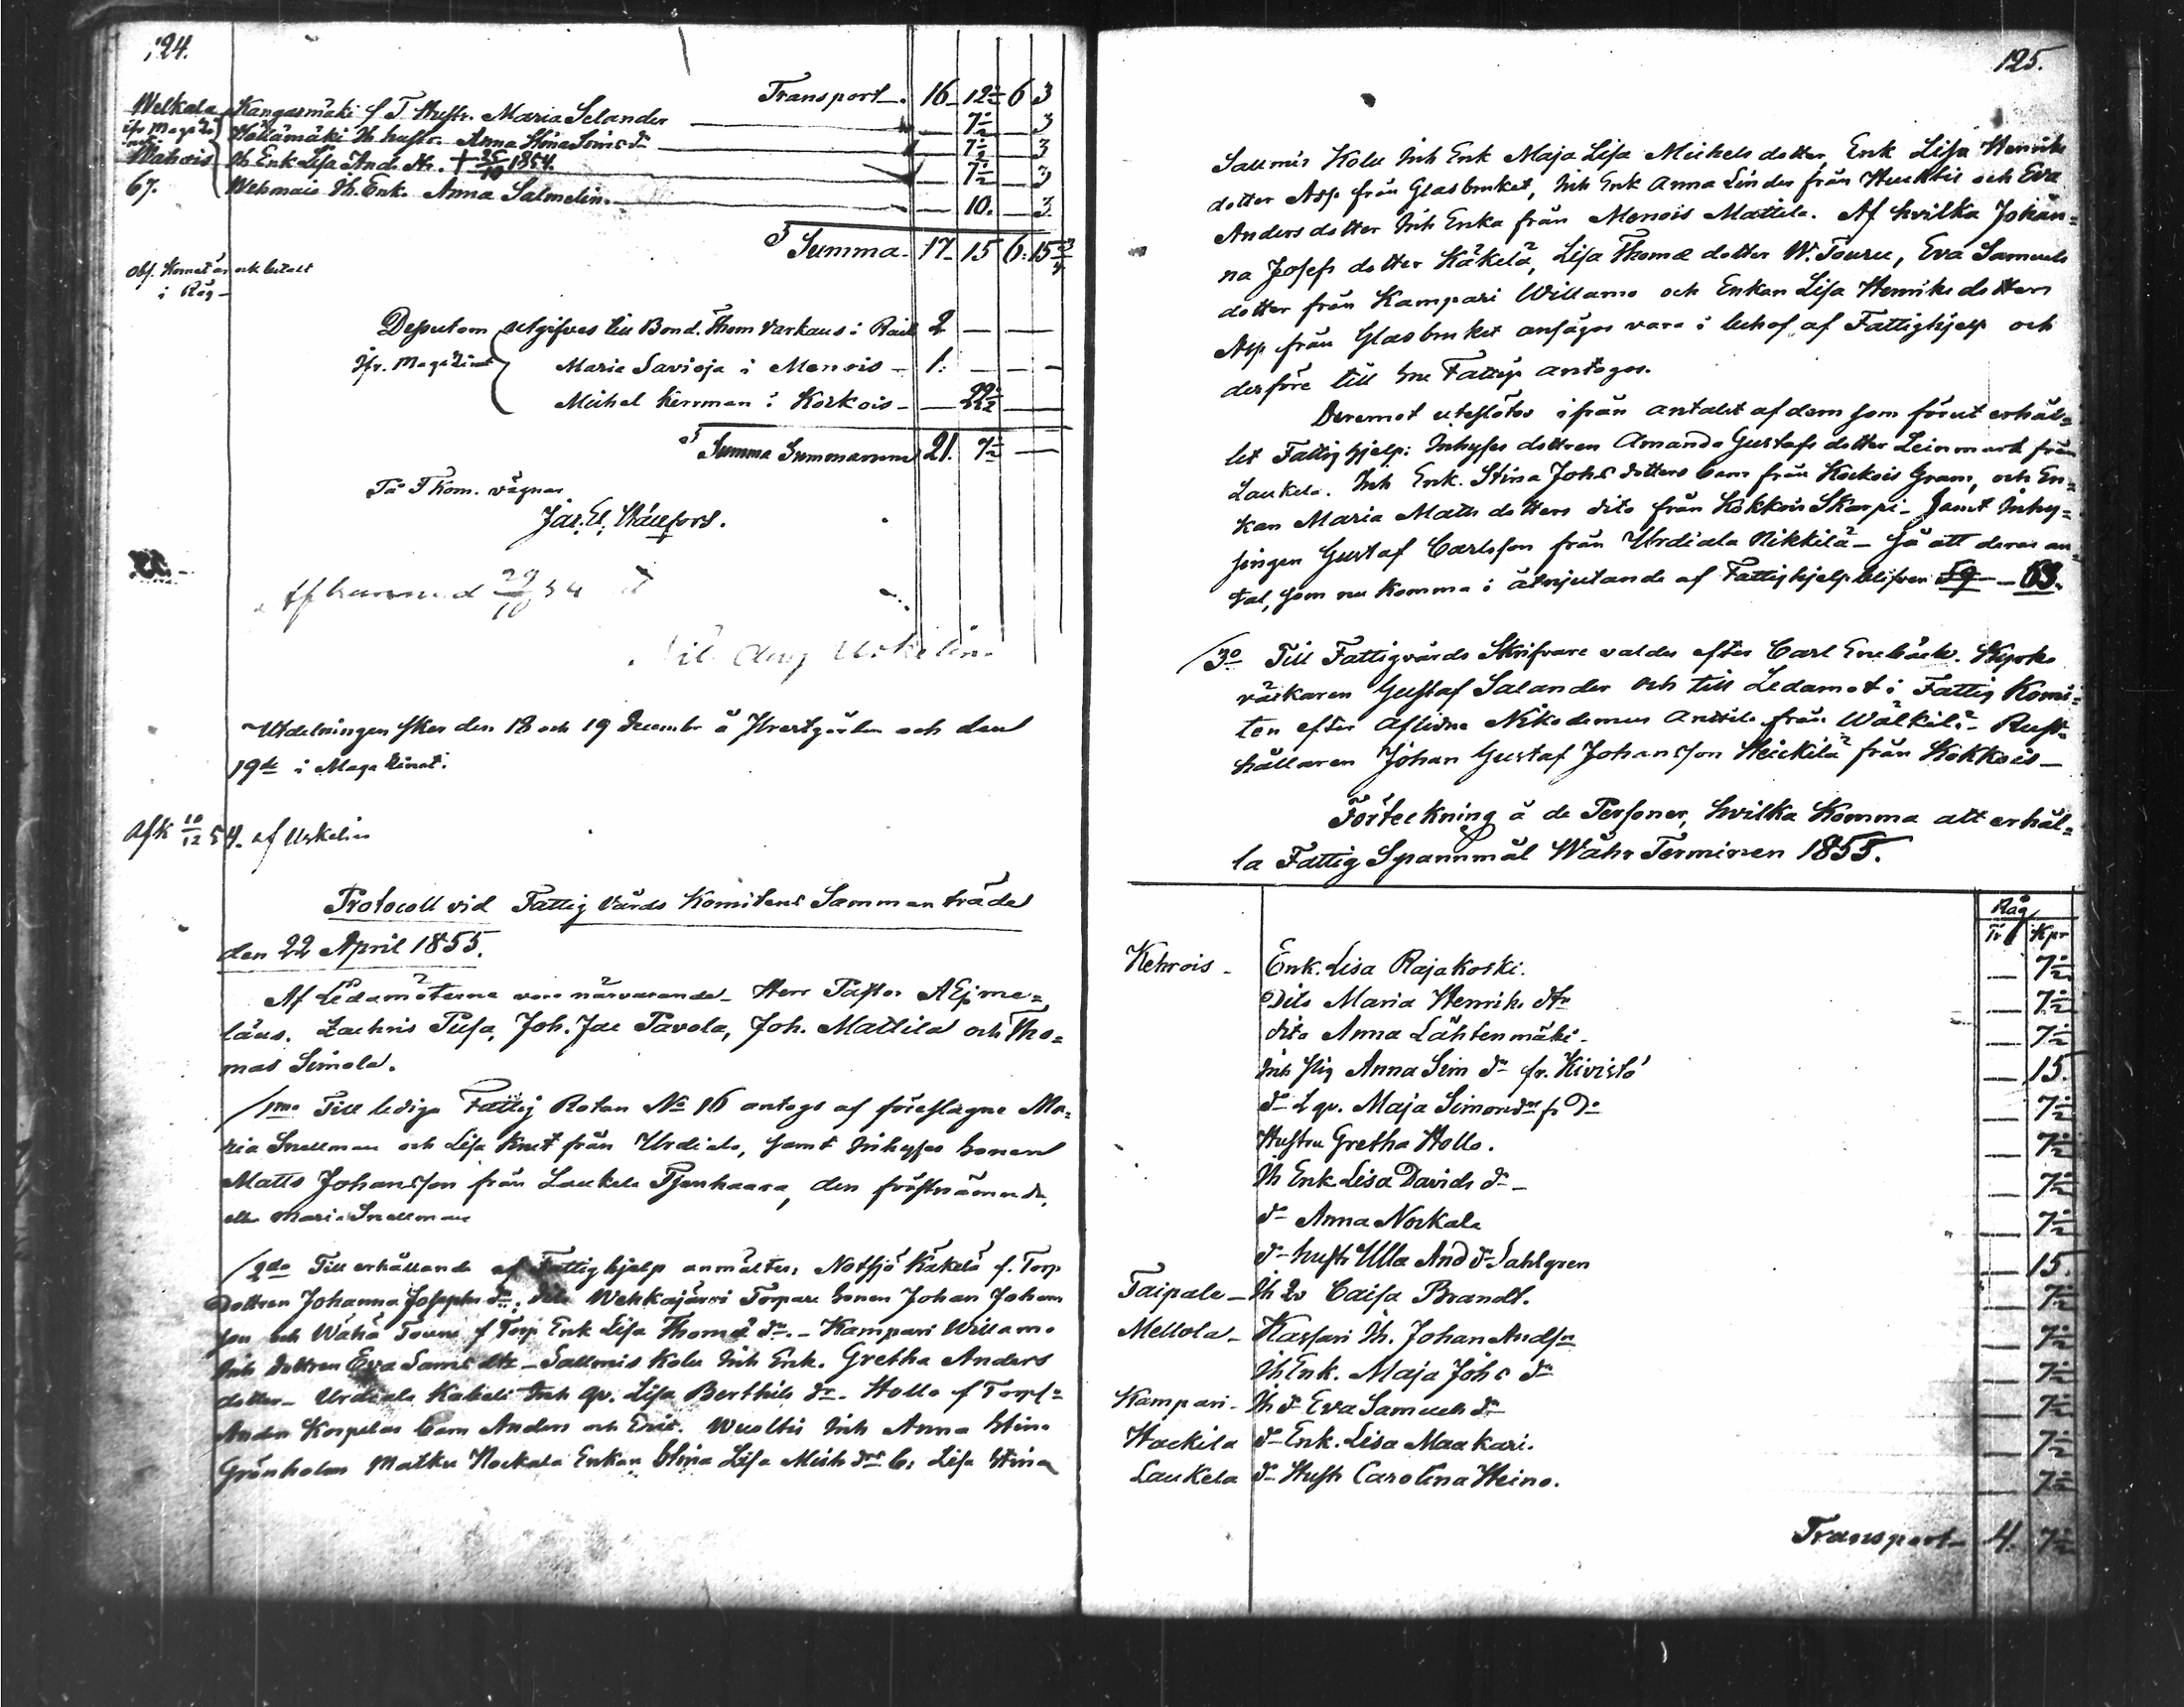 124.
Transport. 16 12½ 6 3
Welkala Kangasmäki f T. Hustr. Maria Selander — 7½ — 3
ifr Magaz. Hollämäki Ih hustr. Anna Stina Sims dr — 7½ — 3
Wahois Ih Enk Lisa And. dtr. + 25/10 1854. — 7½ — 3
67. Wehmais Ih. Enk. Anna Salmelin. — 10. — 3
Summa. 17 15 6. 15¾
Obs. Kornet är ock betalt
i Råg
Deputom utgifves till Bond. Thom Varkaus i Raik 2 — —
ifr. Magazinet Maria Savioja i Menois 1. — — —
Michel Kerrman i Kokkois — 22½ —
Summa Summarum 21. 7½ —
På F Kom. vägnar
Afkunnad 29/10 54
Nils Aug Uskelin
Utdelningen sker den 18 och 19 December å Prestgården och den
19de i Magazinet.
Afk 10/12 54. af Uskelin
Protocoll vid Fattig Vårds Komitens Sammanträde
den 22 April 1855.
Af Ledamöterne voro närvarande Herr Pastor A Ejme=
läus. Zachris Pusa, Joh. Jac Pavola, Joh. Mattila och Tho=
mas Simola.
1mo Till lediga Fattig Rotan No 16 antogs af föreslagne Ma=
ria Snellman och Lisa Knut från Urdiala, samt Inhyses sonen
Matts Johansson från Laukela Pjenhaara, den förstnämnde
eller Maria Snellman
2do Till erhållande af Fattighjelp anmältes, Notsjö Käkelä f. Torp
dottren Johanna Josephs dr, dito Wehkajärvi Torpare sonen Johan Johans
son och Wähä Touru f Torp Enk Lisa Thomæ dr. Kampari Willamo
Inh dottren Eva Sams dtr Salmis Kolu Inh Enk. Gretha Anders
dotter Urdiala Kaheli Inh qv. Lisa Berthils dr. Hollo f Torps=
Anders Korpelas barn Anders och Eric. Wuoltis Inh Anna Stina
Grönholm Matku Nockala Enkan Stina Lisa Mich drs b. Lisa Stina
125.
Salmis Kolu Inh Enk Maja Lisa Michels dotter, Enk Lisa Henriks
dotter Asp från Glasbruket, Inh Enk Anna Linder från Huhtis och Eva
Anders dotter Inh Enka från Menois Mattila. Af hvilka Johan=
na Josefs dotter Käkelä, Lisa Thomæ dotter W. Touru, Eva Samuels
dotter från Kampari Willamo och Enkan Lisa Henriks dotter
Asp från Glasbruket ansågos vara i behof af Fattighjelp och
derföre till sne Fattige antogos.
Deremot uteslötos ifrån antalet af dem som förut erhål=
lit Fattighjelp: Inhyses dottren Amanda Gustafs dotter Leinmark från
Laukela. Inh Enk. Stina Johs dotters barn från Kokkois Gram, och En=
kan Maria Matts dotters dito från Kokkois Skarpi. Samt Inhy=
singen Gustaf Carlsson från Urdiala Nikkilä — Så att deras an=
tal, som nu komma i åtnjutande af Fattighjelp blifver 59 — 63.
3o Till Fattigvårds Skrifvare valdes efter Carl Enebäck. Kyrko
väktaren Gustaf Salander och till Ledamot i Fattig Komi=
ten efter Aflidne Nikodemus Anttila från Wälkilä Rust=
hållaren Johan Gustaf Johansson Heickilä från Kokkois —
Förteckning å de Personer, hvilka Komma att erhål=
la Fattig Spannmål Wåhr Terminen 1855.
Råg
Tr Kpr
Kehrois Enk. Lisa Rajakoski. — 7½
Dito Maria Henriks dtr — 7½
dito Anna Lähtenmäki — 7½
Inh Pig Anna Sim dr fr. Kivistö — 15.
dr L qv. Maja Simons dr fr Do — 7½
Hustru Gretha Hollo. — 7½
Ih Enk Lisa Davids dr — 7½
do Anna Nockala — 7½
do hustr Ulla And dr Sahlgren — 15.
Taipale Ih Qv Caisa Brandt. — 7½
Mellola Kassari Ih. Johan Andsn — 7½
Ih Enk. Maja Johs dr — 7½
Kampari Ih dr Eva Samuels dr — 7½
Hockila do Enk. Lisa Maakari. — 7½
Laukela do Hustr Carolina Heino. — 7½
Transport 4. 7½